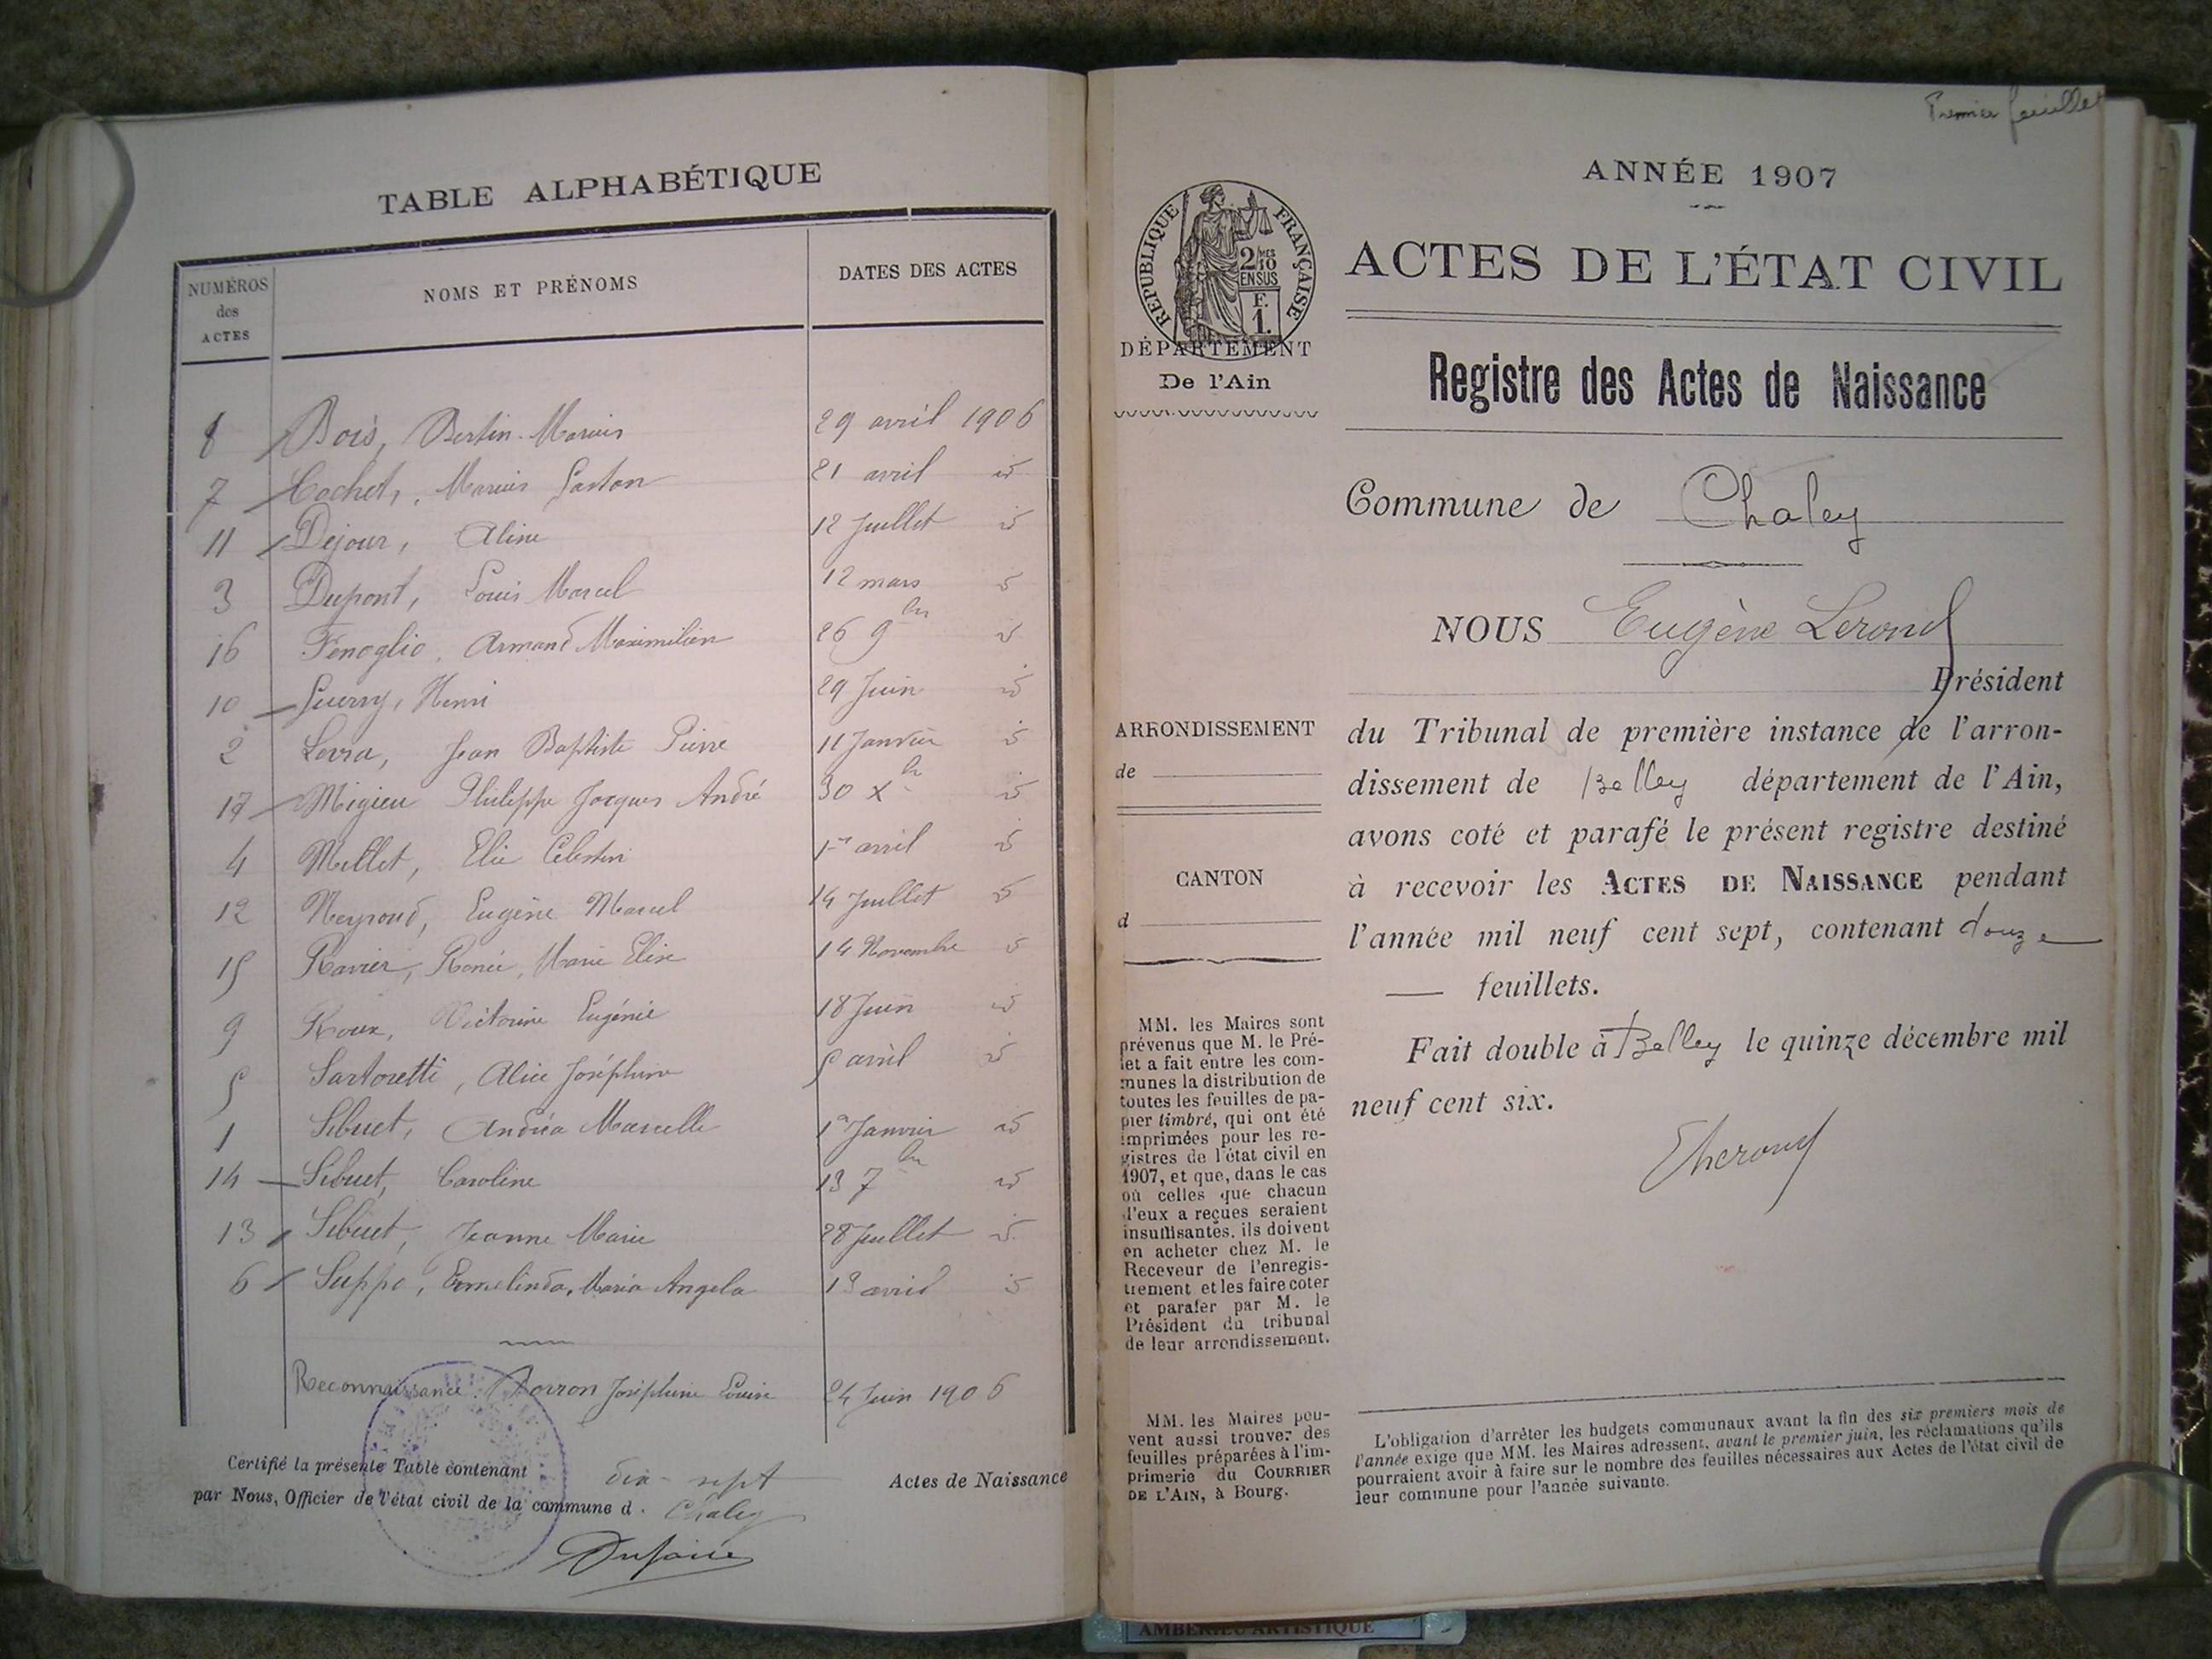 TABLE ALPHABÉTIQUE
NUMÉROS des ACTES
NOMS ET PRÉNOMS
DATES DES ACTES
8 Bois, Bertin Marius 29 avril 1906
7 Cachet, Marius Gaston 21 avril id
11 Dejour, Aline 12 Juillet id
3 Dupont, Louis Marcel 12 mars id
16 Fenoglio, Armand Maximilien 26 9bre id
10 Guerry, Henri 29 Juin id
2 Levra, Jean Baptiste Pierre 11 Janvier id
17 Migieu Philippe Jacques André 30 Xbre id
4 Millet, Elie Célestin 1er avril id
12 Neyroud, Eugène Marcel 14 Juillet id
15 Ravier, Renée, Marie Elise 14 Novembre id
9 Roux, Victorine Eugénie 18 Juin id
5 Sartoretti, Alice Joséphine 5 avril id
1 Sibuet, Andréa Marcelle 1er Janvier id
14 Sibuet, Caroline 13 7bre id
13 Sibuet, Jeanne Marie 28 Juillet id
6 Suppo, Ermelinda, Maria Angela 13 avril id
Reconnaissance. Borron Joséphine Louise 24 Juin 1906
Certifié la présente Table contenant dix-sept Actes de Naissance
par Nous, Officier de l'état civil de la commune d. Chaley
Premier feuillet
ANNÉE 1907
RÉPUBLIQUE FRANÇAISE
2/10 MES
EN SUS
F.
1.
ACTES DE L'ÉTAT CIVIL
DÉPARTEMENT
De l'Ain
Registre des Actes de Naissance
Commune de Chaley
NOUS Eugène Lerond
Président
ARRONDISSEMENT
de
du Tribunal de première instance de l'arron-
dissement de Belley département de l'Ain,
avons coté et parafé le présent registre destiné
CANTON
d
à recevoir les ACTES DE NAISSANCE pendant
l'année mil neuf cent sept, contenant douze
feuillets.
Fait double à Belley le quinze décembre mil
neuf cent six.
MM. les Maires sont
prévenus que M. le Pré-
fet a fait entre les com-
munes la distribution de
toutes les feuilles de pa-
pier timbré, qui ont été
imprimées pour les re-
gistres de l'état civil en
1907, et que, dans le cas
où celles que chacun
d'eux a reçues seraient
insuffisantes, ils doivent
en acheter chez M. le
Receveur de l'enregis-
trement et les faire coter
et parafer par M. le
Président du tribunal
de leur arrondissement.
MM. les Maires peu-
vent aussi trouver des
feuilles préparées à l'im-
primerie du COURRIER
DE L'AIN, à Bourg.
L'obligation d'arrêter les budgets communaux avant la fin des six premiers mois de
l'année exige que MM. les Maires adressent, avant le premier juin, les réclamations qu'ils
pourraient avoir à faire sur le nombre des feuilles nécessaires aux Actes de l'état civil de
leur commune pour l'année suivante.
AMBERIEU ARTISTIQUE